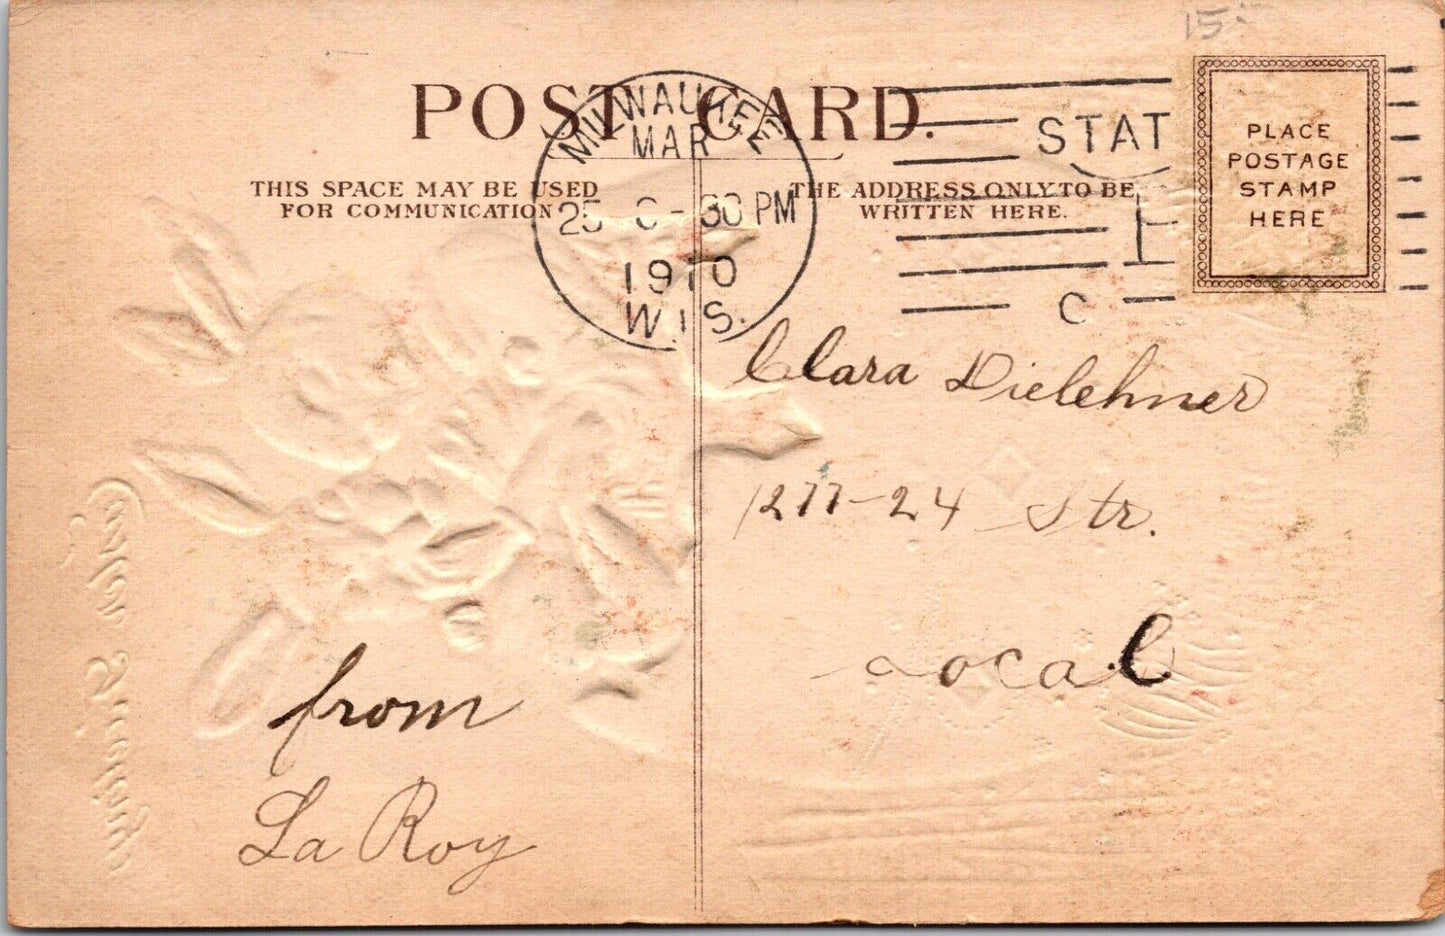 15
POST CARD.
MILWAUKEE
MAR
25
30 PM
1910
WIS.
STAT
C
THIS SPACE MAY BE USED
FOR COMMUNICATION
THE ADDRESS ONLY TO BE
WRITTEN HERE.
PLACE
POSTAGE
STAMP
HERE
Clara Dielehner
1277-24 Str.
Local
from
La Roy